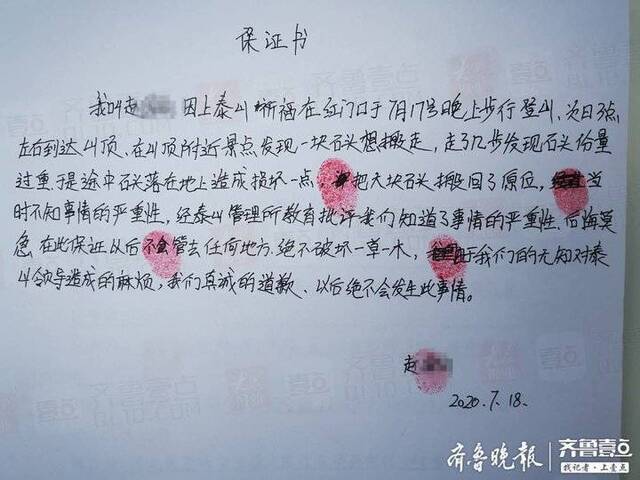 保证书
我叫赵 因上泰山祈福在红门口于7月17号晚上步行登山,次日3点
左右到达山顶.在山顶附近景点发现一块石头想搬走,走了几步发现石头份量
过重.于是途中石头落在地上造成损坏一点,把大块石头搬回了原位,当
时不知事情的严重性,经泰山管理所教育批评我们知道了事情的严重性.后悔莫
急.在此保证以后不会管去任何地方.绝不破坏一草一木,由于我们的无知对泰
山领导造成的麻烦,我们真诚的道歉、以后绝不会发生此事情。
赵
2020.7.18.
齐鲁晚报 齐鲁壹点
找记者·上壹点